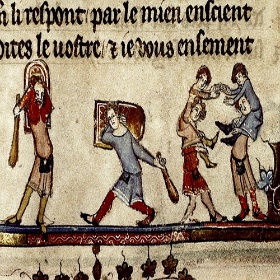 li respont / par le mien encient
dites le uostre / & ie uous ensement